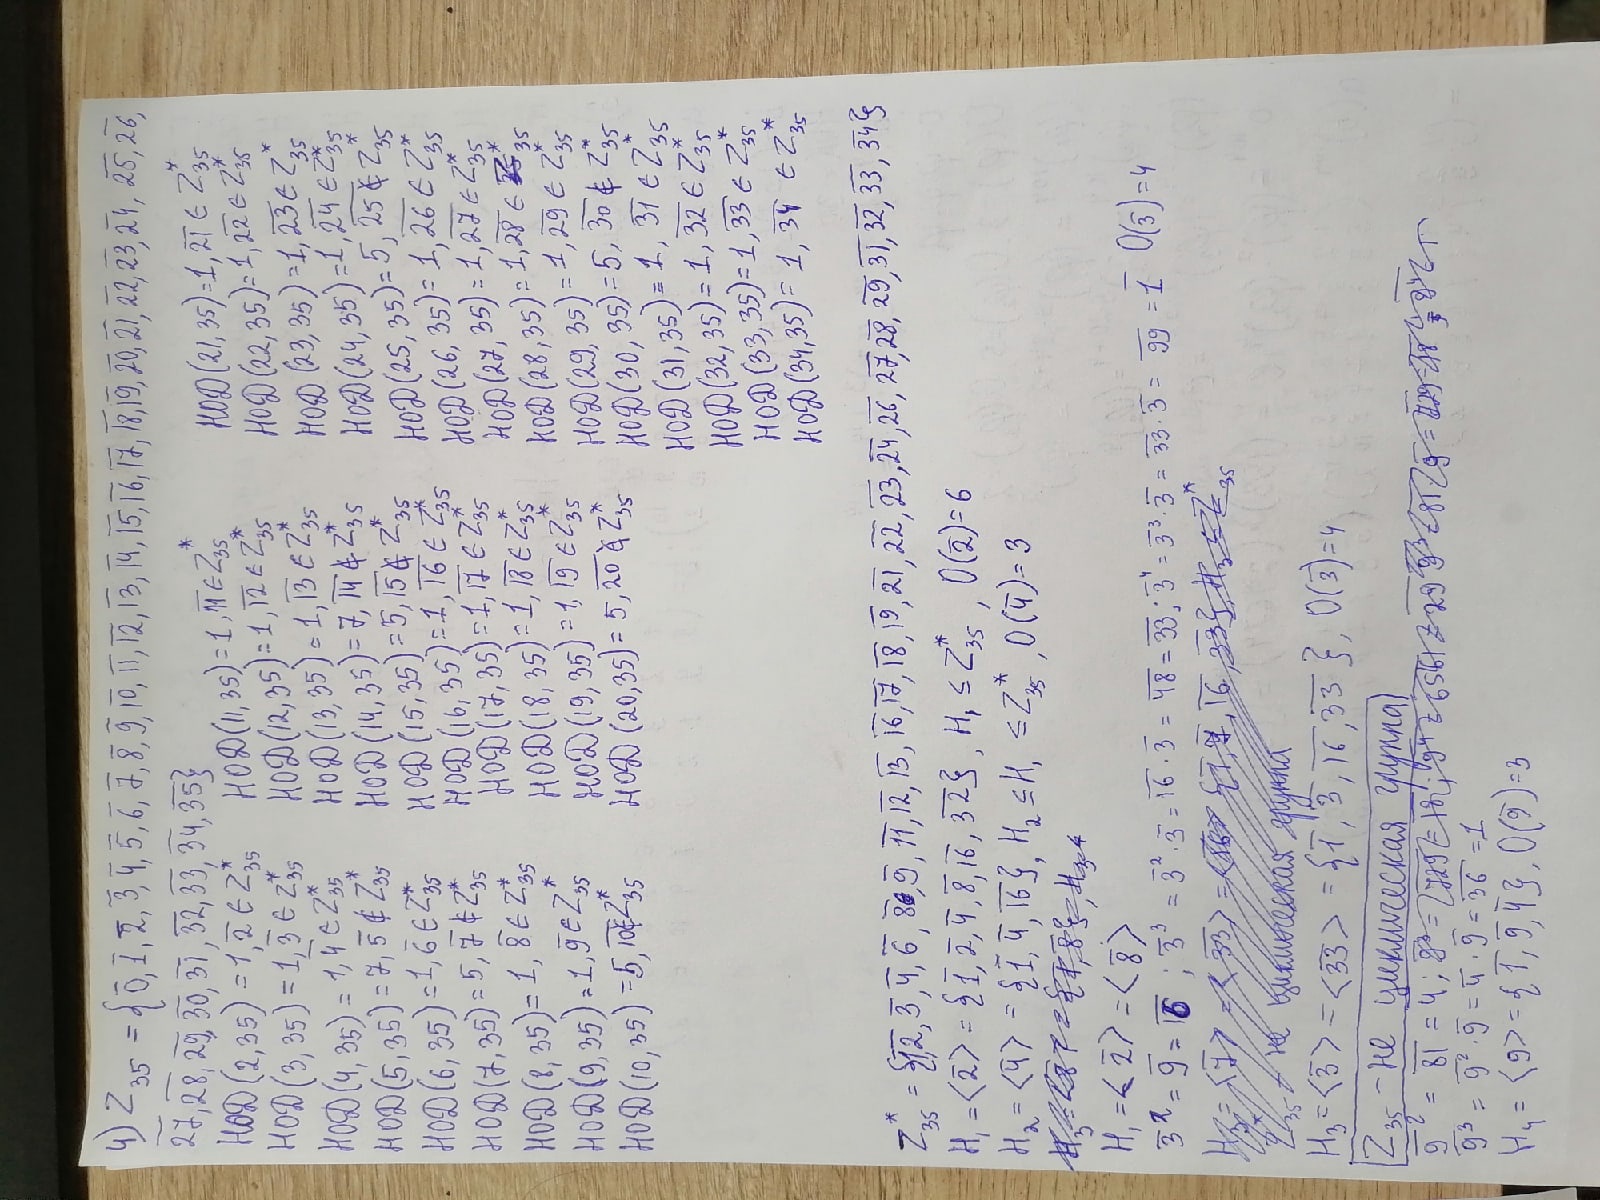 4) Z₃₅ = {0̅, 1̅, 2̅, 3̅, 4̅, 5̅, 6̅, 7̅, 8̅, 9̅, 10, 11, 12, 13, 14, 15, 16, 17, 18, 19, 20, 21, 22, 23, 24, 25, 26,
27, 28, 29, 30, 31, 32, 33, 34, 35}
НОД(2,35) = 1, 2̅ ∈ Z₃₅*
НОД(3,35) = 1, 3̅ ∈ Z₃₅*
НОД(4,35) = 1, 4̅ ∈ Z₃₅*
НОД(5,35) = 7, 5̅ ∉ Z₃₅*
НОД(6,35) = 1, 6̅ ∈ Z₃₅*
НОД(7,35) = 5, 7̅ ∉ Z₃₅*
НОД(8,35) = 1, 8̅ ∈ Z₃₅*
НОД(9,35) = 1, 9̅ ∈ Z₃₅*
НОД(10,35) = 5, 10 ∉ Z₃₅*
НОД(11,35) = 1, 11 ∈ Z₃₅*
НОД(12,35) = 1, 12 ∈ Z₃₅*
НОД(13,35) = 1, 13 ∈ Z₃₅*
НОД(14,35) = 7, 14 ∉ Z₃₅*
НОД(15,35) = 5, 15 ∉ Z₃₅*
НОД(16,35) = 1, 16 ∈ Z₃₅*
НОД(17,35) = 1, 17 ∈ Z₃₅*
НОД(18,35) = 1, 18 ∈ Z₃₅*
НОД(19,35) = 1, 19 ∈ Z₃₅*
НОД(20,35) = 5, 20 ∉ Z₃₅*
НОД(21,35) = 1, 21 ∈ Z₃₅*
НОД(22,35) = 1, 22 ∈ Z₃₅*
НОД(23,35) = 1, 23 ∈ Z₃₅*
НОД(24,35) = 1, 24 ∈ Z₃₅*
НОД(25,35) = 5, 25 ∉ Z₃₅*
НОД(26,35) = 1, 26 ∈ Z₃₅*
НОД(27,35) = 1, 27 ∈ Z₃₅*
НОД(28,35) = 1, 28 ∈ Z₃₅*
НОД(29,35) = 1, 29 ∈ Z₃₅*
НОД(30,35) = 5, 30 ∉ Z₃₅*
НОД(31,35) = 1, 31 ∈ Z₃₅*
НОД(32,35) = 1, 32 ∈ Z₃₅*
НОД(33,35) = 1, 33 ∈ Z₃₅*
НОД(34,35) = 1, 34 ∈ Z₃₅*
Z₃₅* = {1, 2̅, 3̅, 4̅, 6̅, 8̅, 9̅, 11, 12, 13, 16, 17, 18, 19, 21, 22, 23, 24, 26, 27, 28, 29, 31, 32, 33, 34}
H₁ = <2̅> = {1̅, 2̅, 4̅, 8̅, 16, 32}, H₁ ≤ Z₃₅*, O(2̅) = 6
H₂ = <4̅> = {1̅, 4̅, 16}, H₂ ≤ H₁ ≤ Z₃₅*, O(4̅) = 3
H₁ = <2̅> = <8̅>
3̅² = 9̅ = 16; 3̅³ = 3̅²·3̅ = 16·3̅ = 48 = 33; 3̅⁴ = 3̅³·3̅ = 33·3̅ = 99 = 1̅ O(3̅) = 4
Z₃₅* - не циклическая группа
H₃ = <3̅> = <33> = {1̅, 3̅, 16, 33}, O(3̅) = 4
Z₃₅ - не циклическая группа
9̅² = 81 = 4;
9̅³ = 9̅²·9̅ = 4̅·9̅ = 36 = 1
H₄ = <9> = {1̅, 9̅, 4̅}, O(9̅) = 3